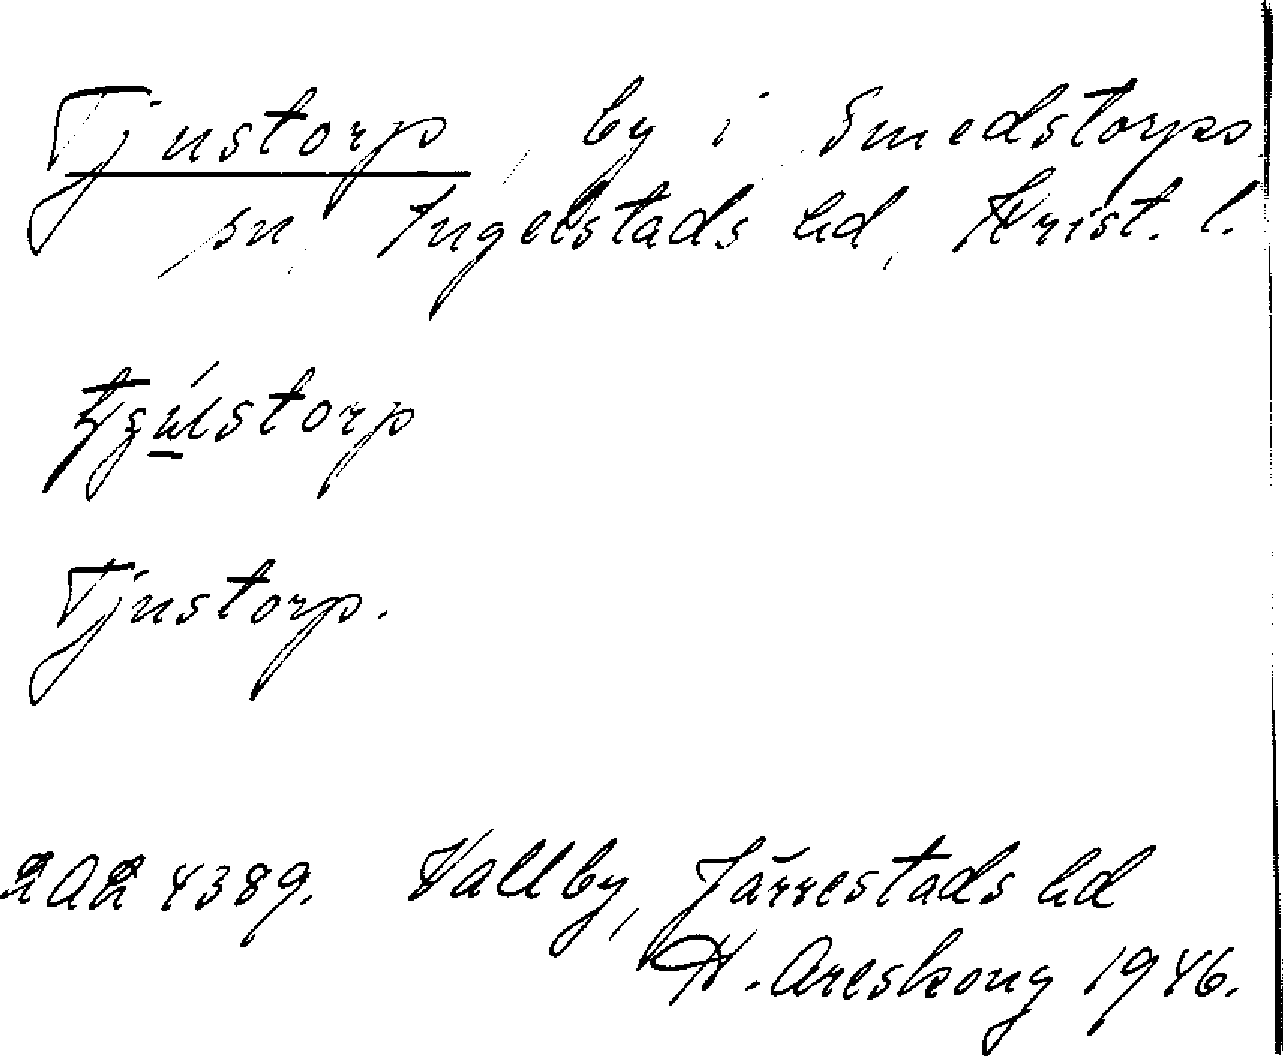 Tjustorp, by i Smedstorps
sn, Ingelstads hd, Krist. l.
Tjustorp.
LAL 4389. Vallby, Järrestads hd
H. Areskoug 1946.